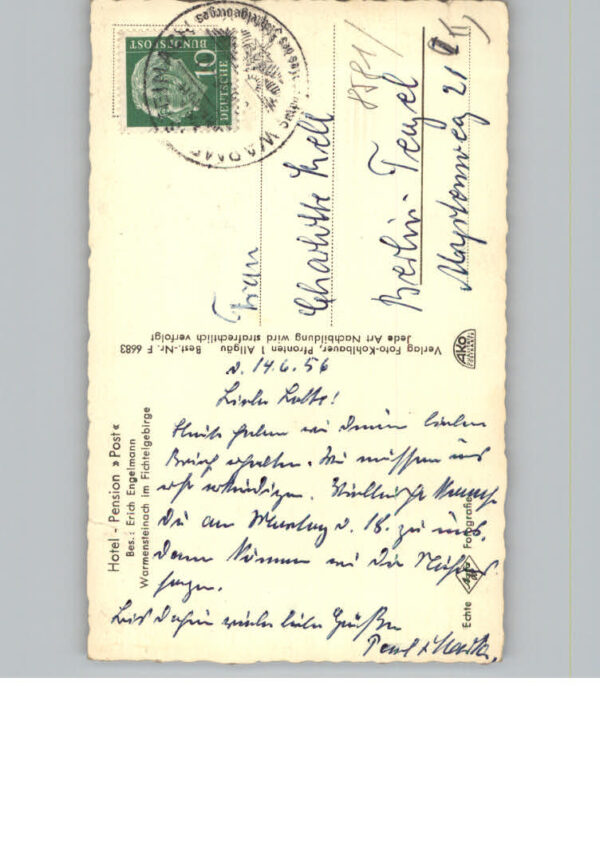 Hotel - Pension »Post«
Bes.: Erich Engelmann
Warmensteinach im Fichtelgebirge
d. 14.6.56
Liebe Lotte!
Heute haben wir Deinen lieben
Brief erhalten. Wir müssen uns
erst erkundigen. Vielleicht kommst
Du am Montag d. 18. zu uns,
dann können wir Dir Näheres
sagen.
Bis dahin viele liebe Grüße
Paul &
Verlag Foto-Kohlbauer, Pfronten 1 Allgäu Best.-Nr. F 6683
Jede Art Nachbildung wird strafrechtlich verfolgt
AKO
Echte Fotografie
DEUTSCHE
BUNDESPOST
10
Frau
Charlotte Krell
Berlin-Tegel
21